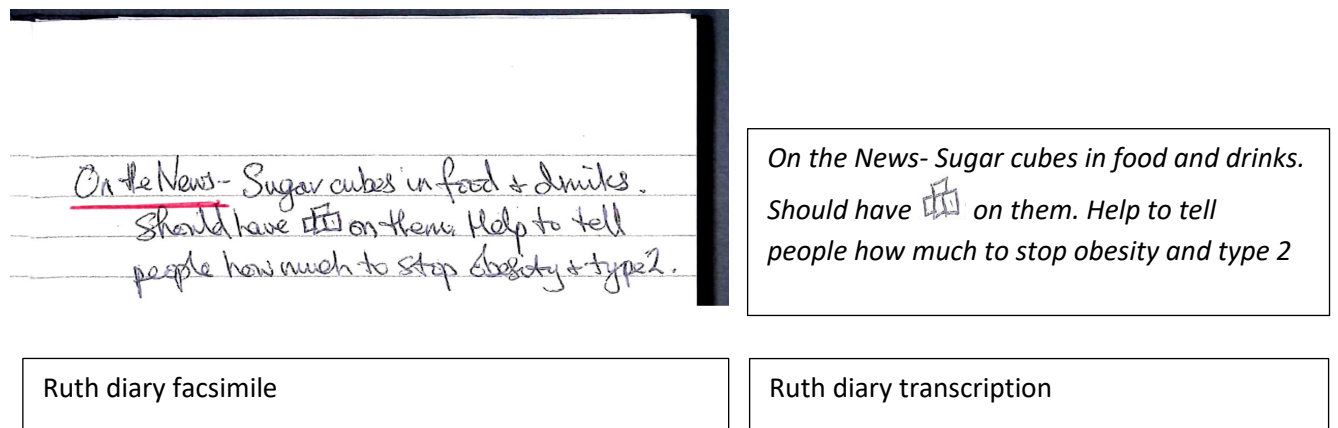 On the News - Sugar cubes in food + drinks.
Should have on them. Help to tell
people how much to stop obesity + type 2.
On the News- Sugar cubes in food and drinks.
Should have on them. Help to tell
people how much to stop obesity and type 2
Ruth diary facsimile
Ruth diary transcription